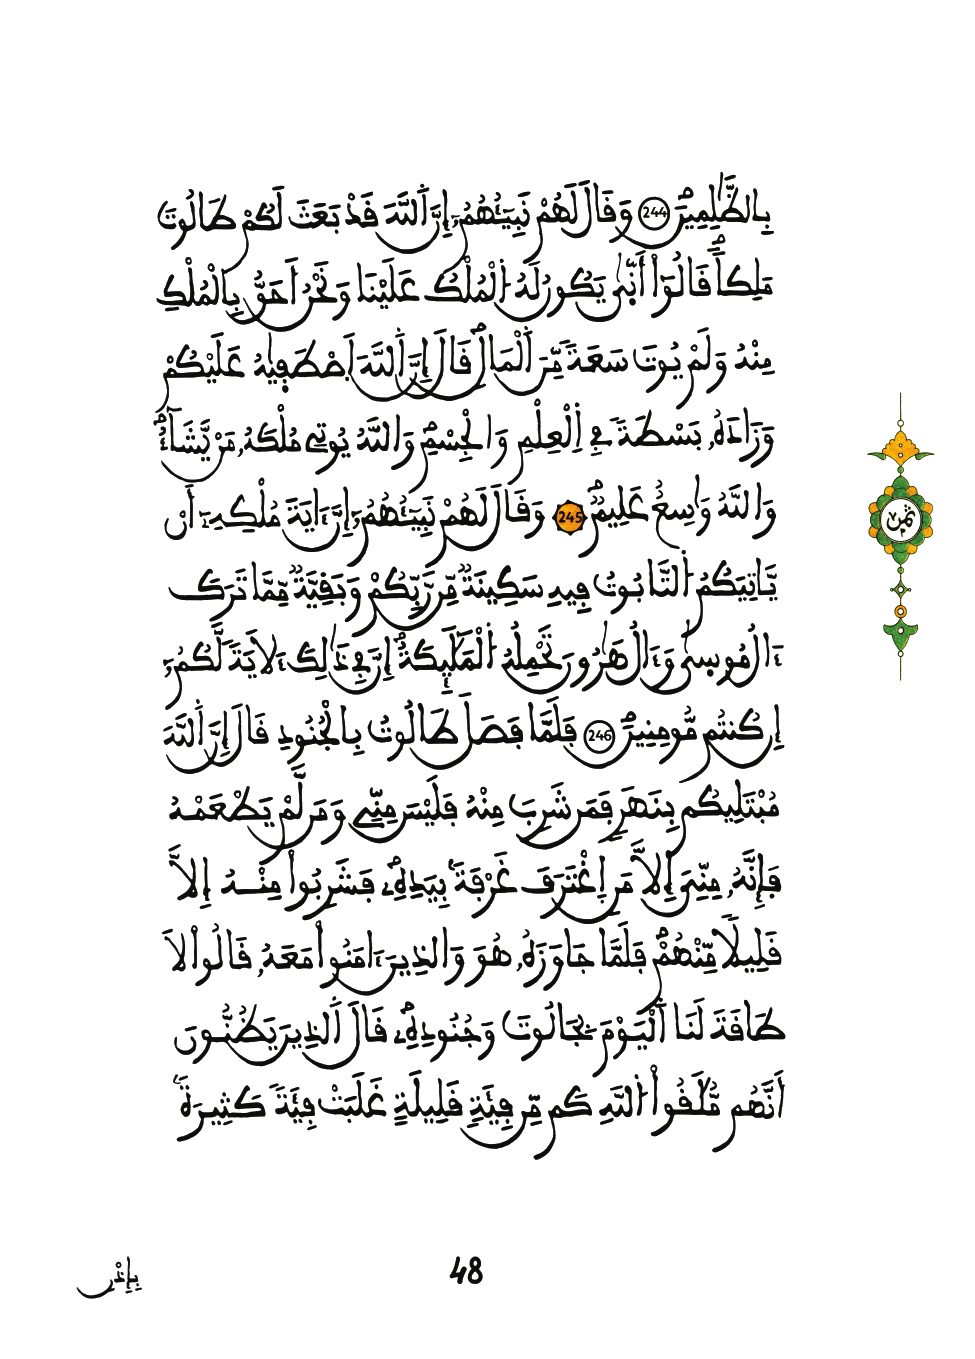 بِالظَّٰلِمِينَ 244 وَقَالَ لَهُمْ نَبِيٓـُٔهُمُۥٓ إِنَّ اَ۬للَّهَ قَدْ بَعَثَ لَكُمْ طَالُوتَ
مَلِكاٗ قَالُوٓاْ أَنّ۪يٰ يَكُونُ لَهُ اُ۬لْمُلْكُ عَلَيْنَا وَنَحْنُ أَحَقُّ بِالْمُلْكِ
مِنْهُ وَلَمْ يُوتَ سَعَةٗ مِّنَ اَ۬لْمَالِۖ قَالَ إِنَّ اَ۬للَّهَ اَ۪صْطَف۪يٰهُ عَلَيْكُمْ
وَزَادَهُۥ بَسْطَةٗ فِے اِ۬لْعِلْمِ وَالْجِسْمِۖ وَاللَّهُ يُوتِے مُلْكَهُۥ مَنْ يَّشَآءُۖ
وَاللَّهُ وَٰسِعٌ عَلِيمٞۖ 245 وَقَالَ لَهُمْ نَبِيٓـُٔهُمُۥٓ إِنَّ ءَايَةَ مُلْكِهِۦٓ أَنْ
يَّاتِيَكُمُ اُ۬لتَّابُوتُ فِيهِ سَكِينَةٞ مِّن رَّبِّكُمْ وَبَقِيَّةٞ مِّمَّا تَرَكَ
ءَالُ مُوس۪يٰ وَءَالُ هَٰرُونَ تَحْمِلُهُ اُ۬لْمَلَٰٓئِكَةُۖ إِنَّ فِے ذَٰلِكَ ءَلَايَةٗ لَّكُمُۥٓ
إِن كُنتُم مُّومِنِينَۖ 246 فَلَمَّا فَصَلَ طَالُوتُ بِالْجُنُودِ قَالَ إِنَّ اَ۬للَّهَ
مُبْتَلِيكُم بِنَهَرٖ فَمَن شَرِبَ مِنْهُ فَلَيْسَ مِنِّے وَمَن لَّمْ يَطْعَمْهُ
فَإِنَّهُۥ مِنِّيَ إِلَّا مَنِ اِ۪غْتَرَفَ غَرْفَةَۢ بِيَدِهِۦۖ فَشَرِبُواْ مِنْهُ إِلَّا
قَلِيلاٗ مِّنْهُمْۖ فَلَمَّا جَاوَزَهُۥ هُوَ وَالذِينَ ءَامَنُواْ مَعَهُۥ قَالُواْ لَا
طَاقَةَ لَنَا اَ۬لْيَوْمَ بِجَالُوتَ وَجُنُودِهِۦۖ قَالَ اَ۬لذِينَ يَظُنُّونَ
أَنَّهُم مُّلَٰقُواْ اُ۬للَّهِ كَم مِّن فِئَةٖ قَلِيلَةٍ غَلَبَتْ فِئَةٗ كَثِيرَةَۢ
ثمن
٢
48
بِإِذْنِ